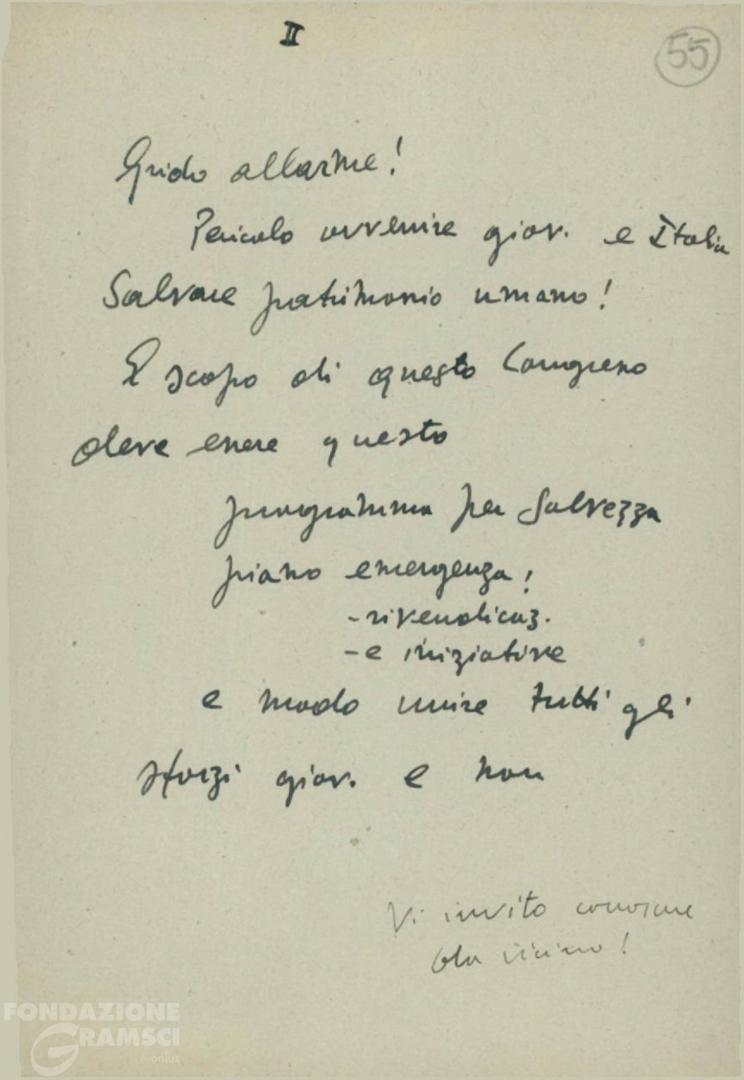 II
55
Grido allarme!
Pericolo avvenire giov. e Italia
Salvare patrimonio umano!
E scopo di questo Congresso
deve essere questo
programma per salvezza
piano emergenza:
- rivendicaz.
- e iniziative
e modo unire tutti gli
sforzi giov. e non
Vi invito conoscere
da vicino!
FONDAZIONE
GRAMSCI
onlus